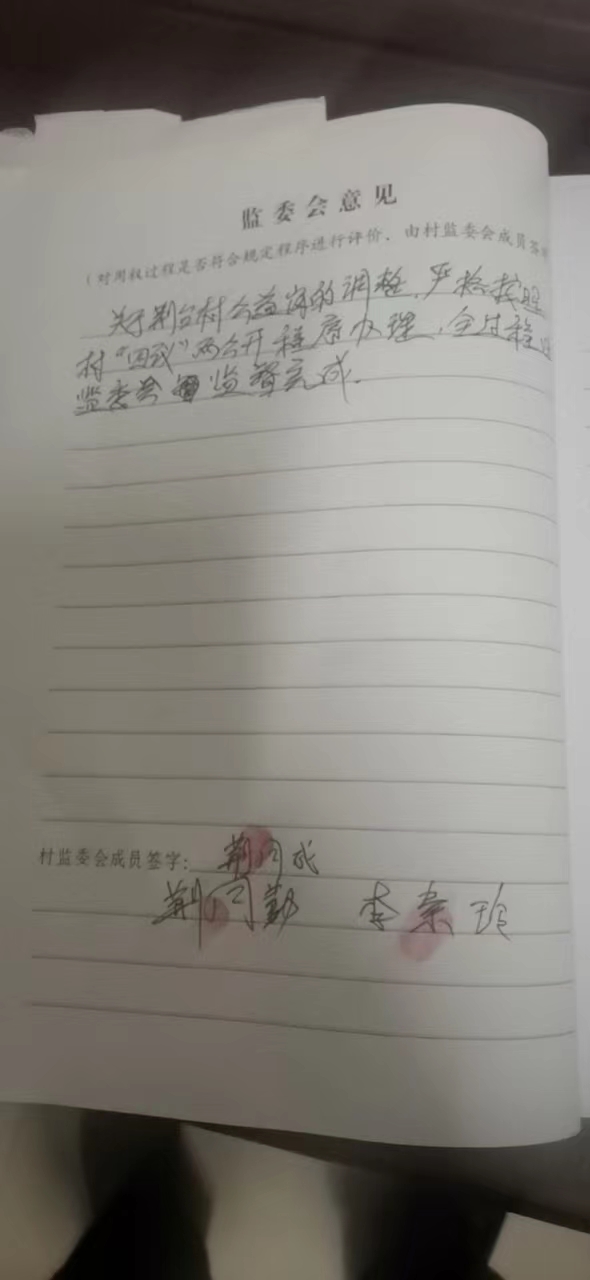 监委会意见
（对用权过程是否符合规定程序进行评价，由村监委会成员签
关于荆台村公益岗的调整，严格按照
村“四议”两公开程序办理，全过程
监委会 监督完成.
村监委会成员签字：荆同成
荆同勤 李荣玲